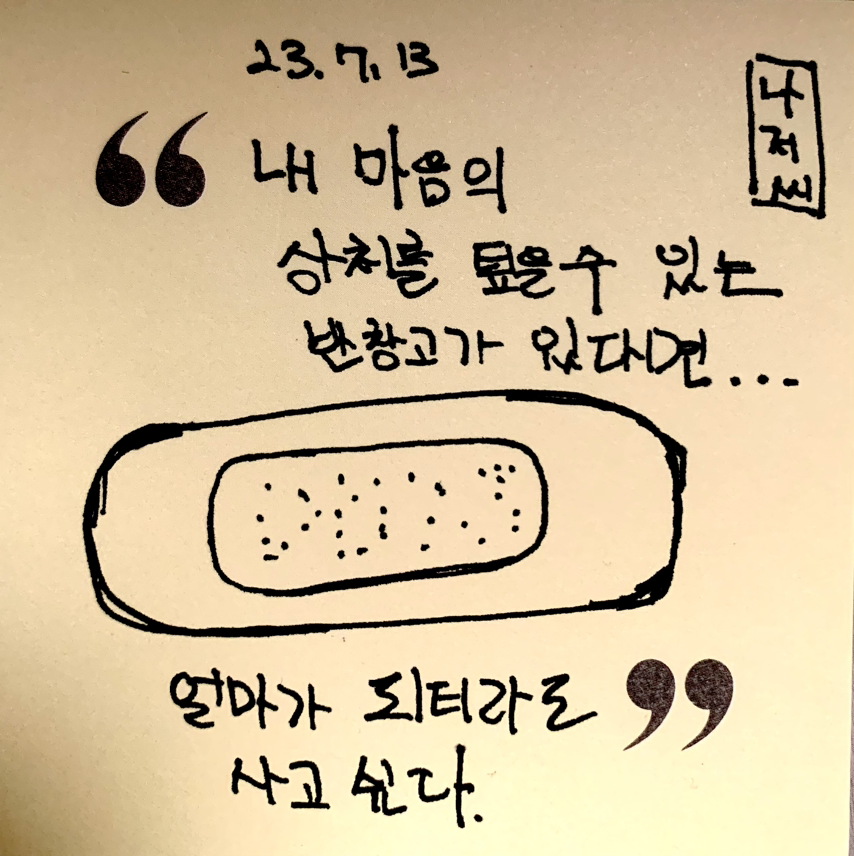 23.7.13
나저씨
“ 내 마음의
상처를 덮을수 있는
반창고가 있다면...
얼마가 되더라도 ”
사고 싶다.